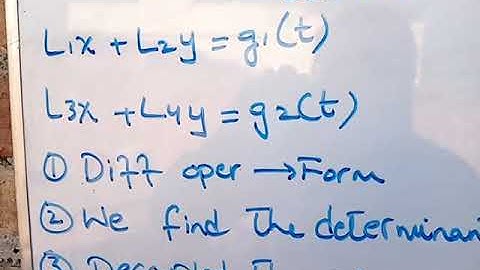 L1x + L2y = g1(t)
L3x + L4y = g2(t)
① Diff oper → Form
② We find The determinan
③